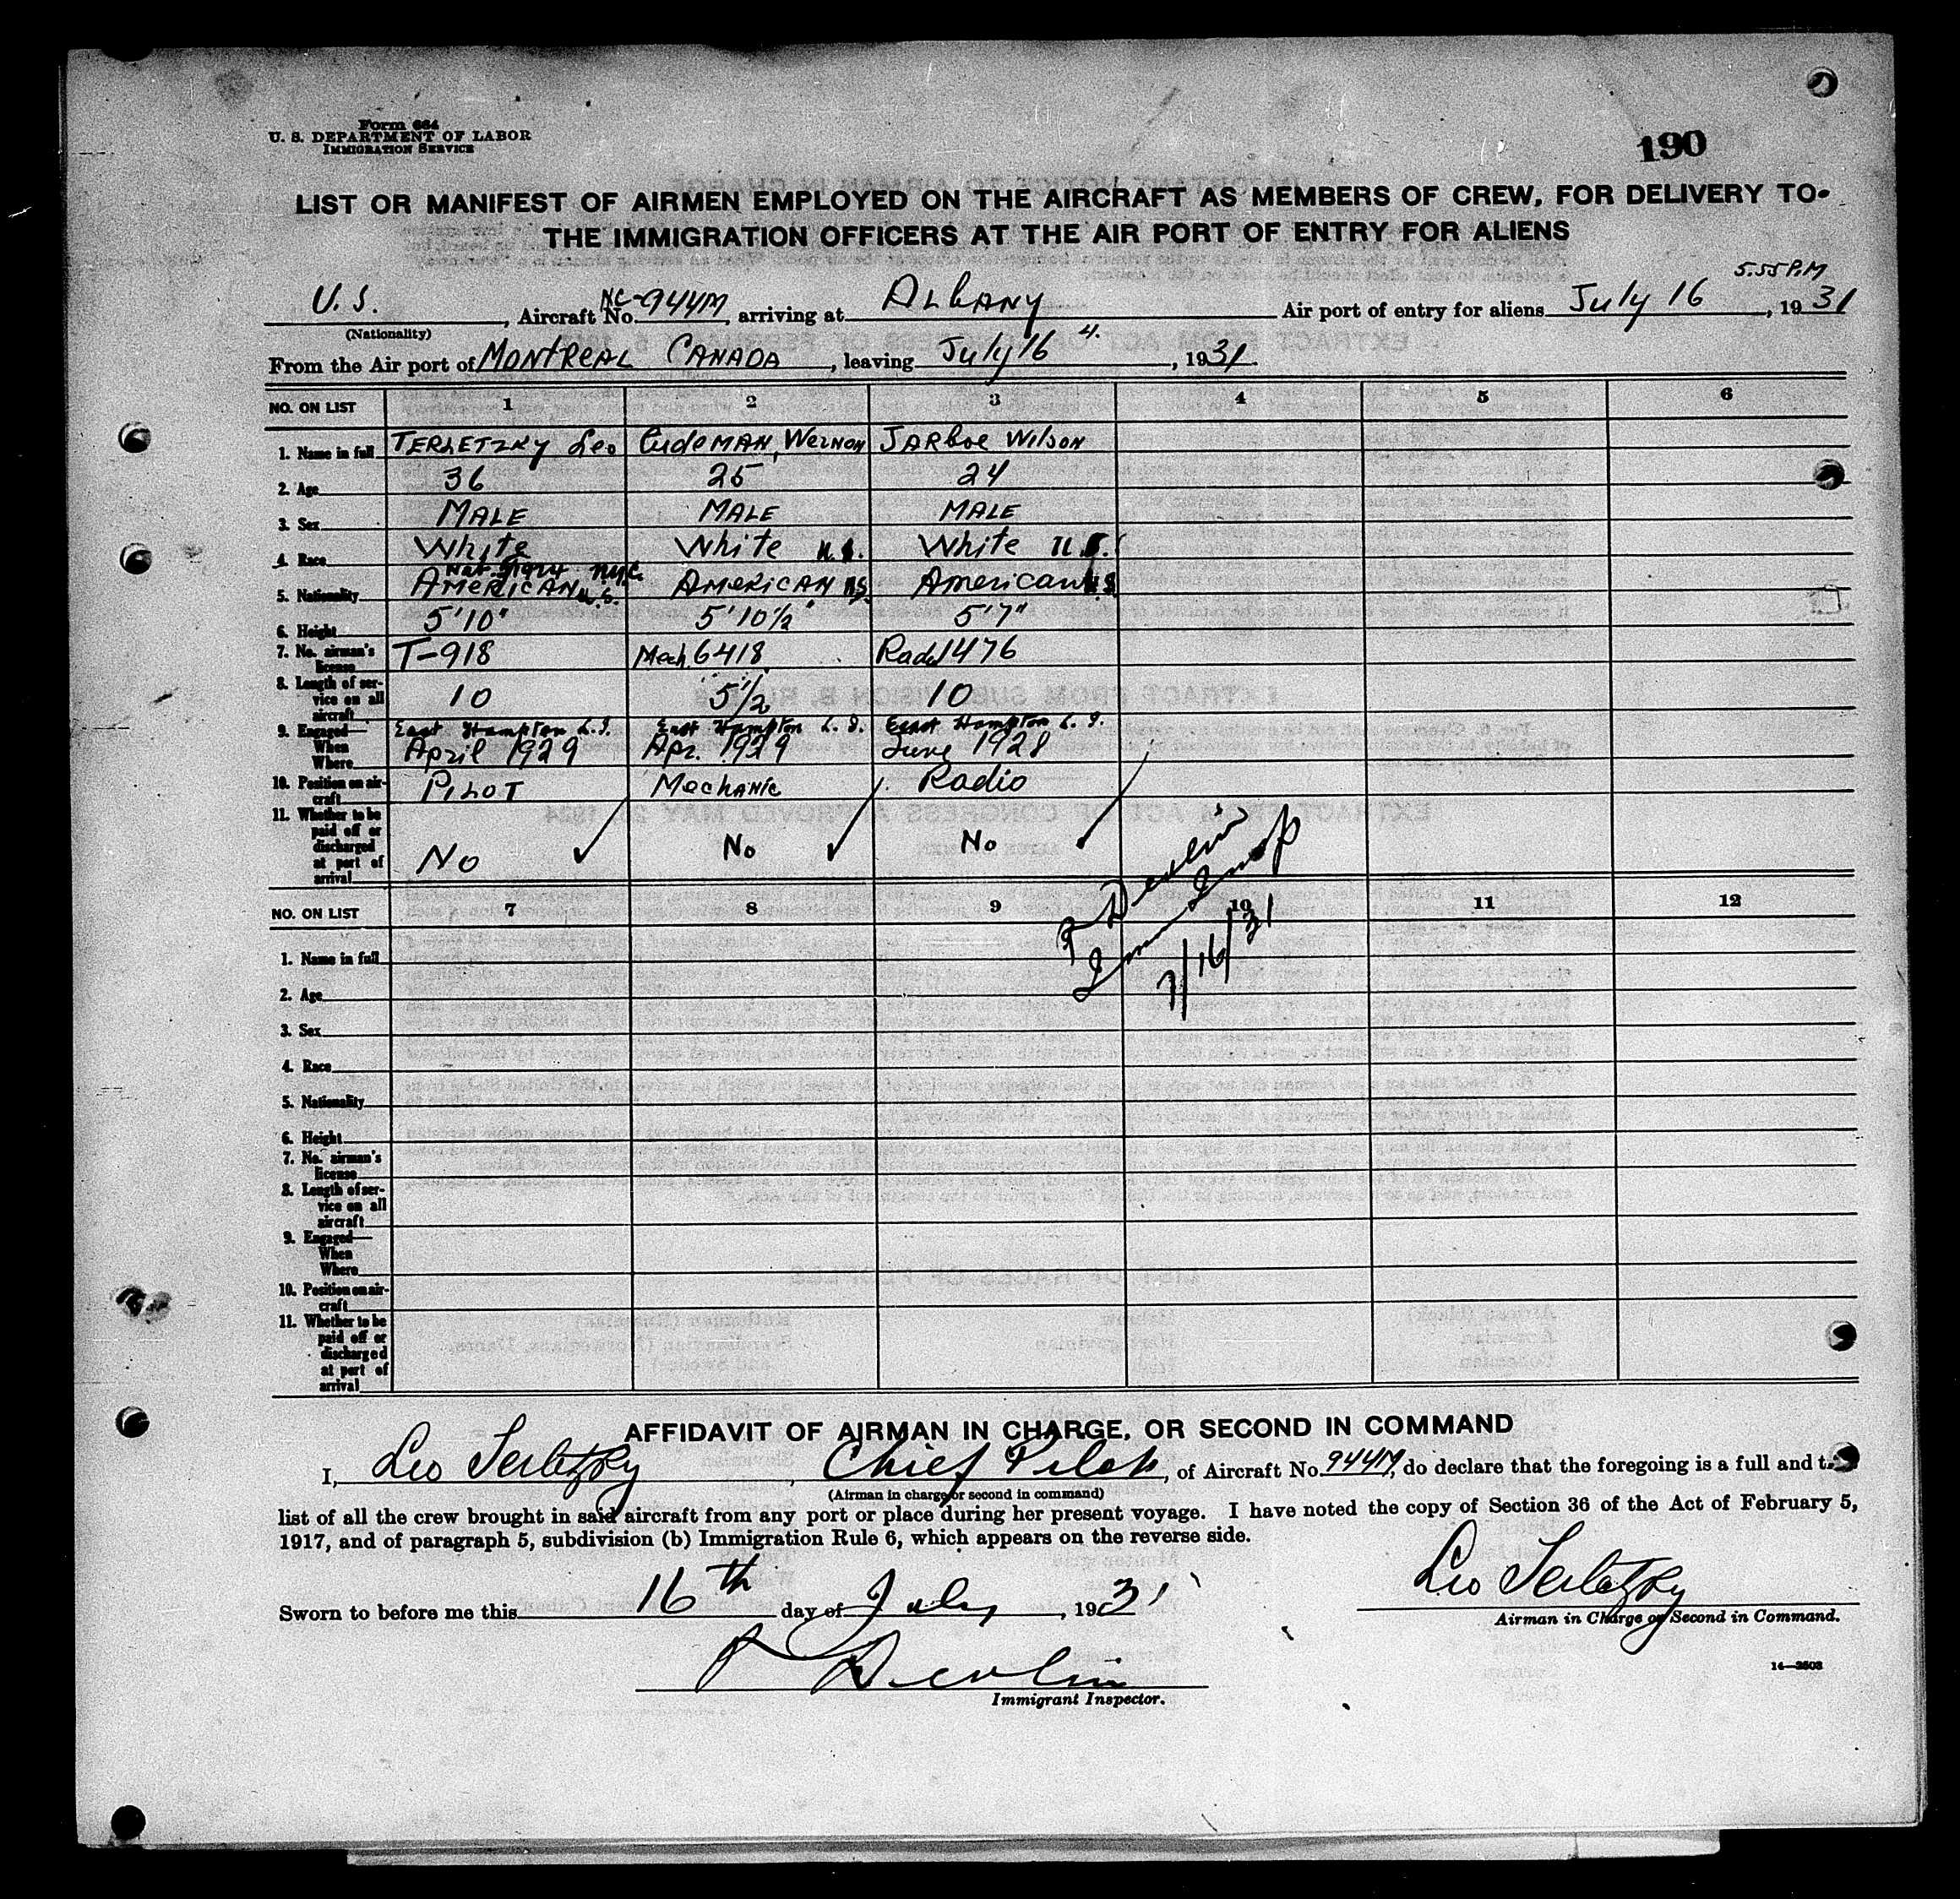 Form 664
U. S. DEPARTMENT OF LABOR
IMMIGRATION SERVICE
190
LIST OR MANIFEST OF AIRMEN EMPLOYED ON THE AIRCRAFT AS MEMBERS OF CREW, FOR DELIVERY TO
THE IMMIGRATION OFFICERS AT THE AIR PORT OF ENTRY FOR ALIENS
5.55 P.M
U.S., Aircraft No. NC-944M, arriving at Albany Air port of entry for aliens July 16, 1931
(Nationality)
From the Air port of Montreal Canada, leaving July 16, 1931.
NO. ON LIST 1 2 3 4 5 6
1. Name in full TERLETZKY Leo CudeMAN, WerNON JARboe Wilson
2. Age 36 25 24
3. Sex MALE MALE MALE
4. Race White White U.S. White U.S.
N.Y.C.
5. Nationality AMERICAN U.S. AMERICAN US American US
6. Height 5'10" 5'10½" 5'7"
7. No. airman's license T-918 Mech. 6418 Rad 1476
8. Length of service on all aircraft 10 5½ 10
9. Engaged— When Where East Hampton L.I. April 1929 East Hampton L.I. Apr. 1929 East Hampton L.I. June 1928
10. Position on aircraft PILOT Mechanic Radio
11. Whether to be paid off or discharged at port of arrival No No No
Devlin
Imm Insp
7/16/31
NO. ON LIST 7 8 9 10 11 12
1. Name in full
2. Age
3. Sex
4. Race
5. Nationality
6. Height
7. No. airman's license
8. Length of service on all aircraft
9. Engaged— When Where
10. Position on aircraft
11. Whether to be paid off or discharged at port of arrival
AFFIDAVIT OF AIRMAN IN CHARGE, OR SECOND IN COMMAND
I, Leo Terletzky, Chief Pilot, of Aircraft No. 944M, do declare that the foregoing is a full and
(Airman in charge or second in command)
list of all the crew brought in said aircraft from any port or place during her present voyage. I have noted the copy of Section 36 of the Act of February 5,
1917, and of paragraph 5, subdivision (b) Immigration Rule 6, which appears on the reverse side.
Leo Terletzky
Sworn to before me this 16th day of July, 1931
Airman in Charge or Second in Command.
Devlin
Immigrant Inspector.
14—2503